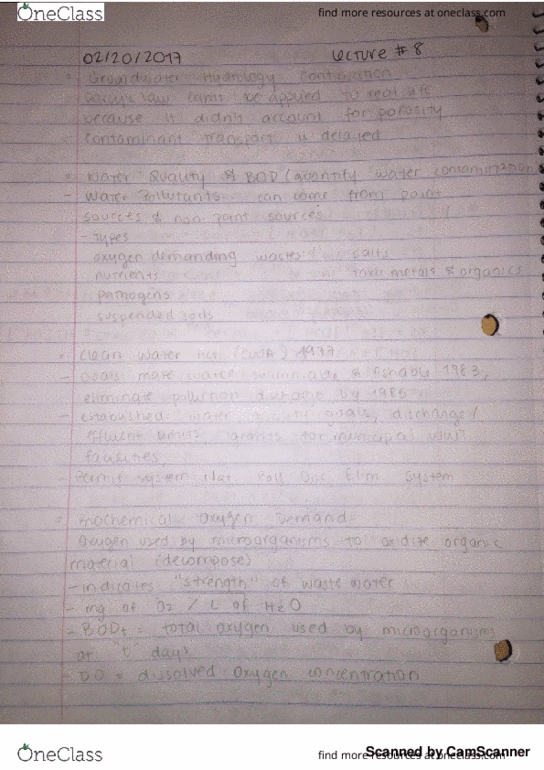 OneClass
find more resources at oneclass.com
02/20/2017 Lecture #8
Groundwater Hydrology Continuation
Darcy's law can't be applied to real life
because it didn't account for porosity
contaminant transport is delayed
Water Quality & BOD (quantify water contamination
- Water Pollutants can come from point
sources & non point sources
- Types
oxygen demanding wastes salts
nutrients toxic metals & organics
pathogens
suspended
Clean Water Act (CWA) 1977
- Goals make water & fishable 1983,
eliminate pollution discharge by 1985
- established water goals, discharge/
effluent limits, grants for municipal
facilities,
- Permit system Nat Poll Elim System
Biochemical Oxygen Demand
oxygen used by microorganisms to oxidize organic
material (decompose)
- indicates "strength" of waste water
- mg of O2 / L of H2O
- BODt = total oxygen used by microorganisms
at "t" days
- DO = dissolved oxygen concentration
OneClass
find more resources at oneclass.com
Scanned by CamScanner